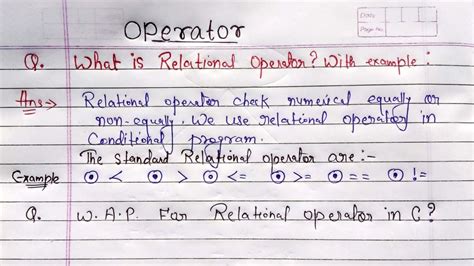 Operator
Date
Page No.
Q. What is Relational Operator? With example :
Ans:-> Relational operator check numerical equally or
non-equally. We use relational operator in
Conditional program.
The Standard Relational operator are :-
Example ⊙ < ⊙ > ⊙ <= ⊙ >= ⊙ == ⊙ !=
Q. W.A.P. For Relational operator in C?